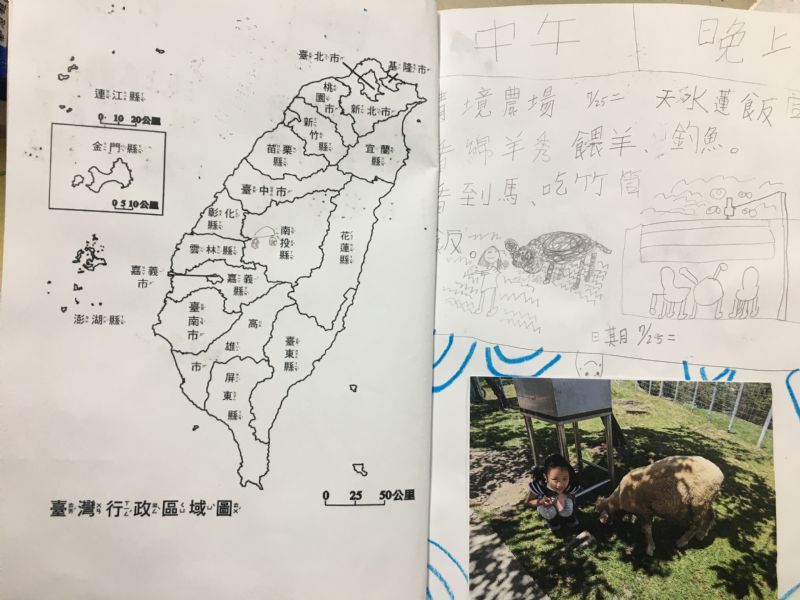 臺北市
基隆市
連江縣
0 10 20公里
桃園市
新北市
新竹縣
金門縣
宜蘭縣
苗栗縣
0 5 10公里
臺中市
彰化縣
南投縣
花蓮縣
雲林縣
嘉義市
嘉義縣
澎湖縣
臺南市
高雄市
臺東縣
屏東縣
臺灣行政區域圖
0 25 50公里
中午
晚上
境農場 7/25二
綿羊秀 餵羊、釣魚。
到馬、吃竹筒
飯。
天水蓮飯
日期 7/25二